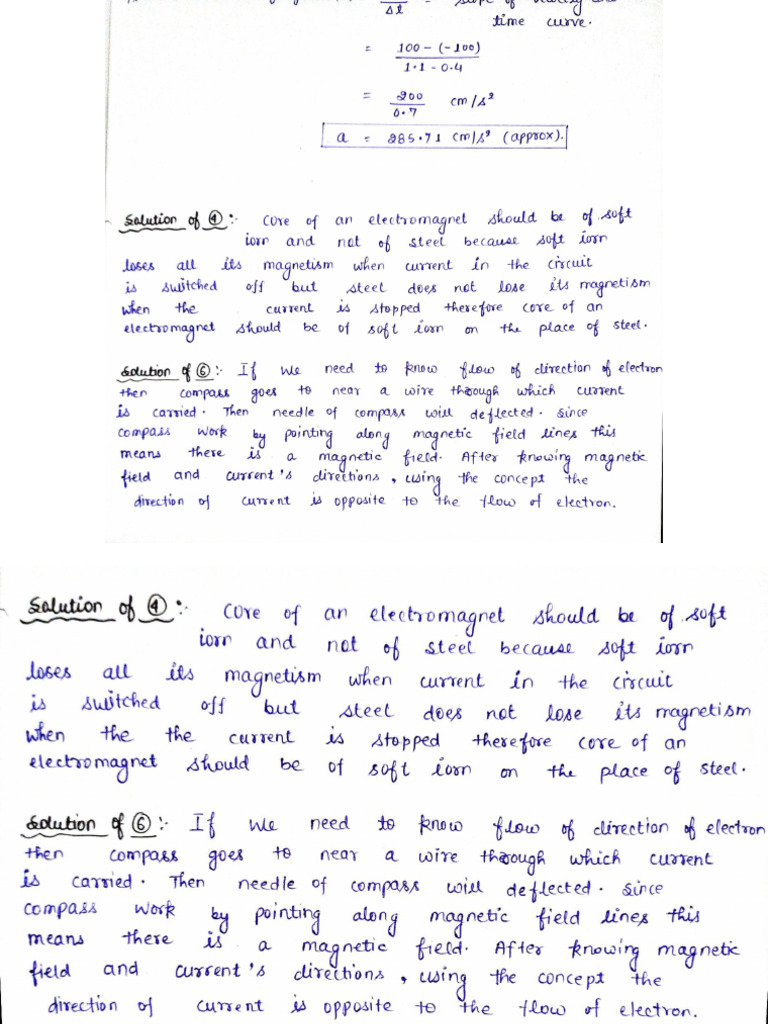 Δt
time curve.
= 100 - (-100)
1.1 - 0.4
= 200 cm/s²
0.7
a = 285.71 cm/s² (approx).
Solution of ④:- Core of an electromagnet should be of soft
iorn and not of steel because soft iorn
loses all its magnetism when current in the circuit
is switched off but steel does not lose its magnetism
when the current is stopped therefore core of an
electromagnet should be of soft iorn on the place of steel.
Solution of ⑥:- If we need to know flow of direction of electron
then compass goes to near a wire through which current
is carried. Then needle of compass will deflected. Since
compass work by pointing along magnetic field lines this
means there is a magnetic field. After knowing magnetic
field and current's directions, using the concept the
direction of current is opposite to the flow of electron.
Solution of ④:- Core of an electromagnet should be of soft
iorn and not of steel because soft iorn
loses all its magnetism when current in the circuit
is switched off but steel does not lose its magnetism
when the the current is stopped therefore core of an
electromagnet should be of soft iorn on the place of steel.
Solution of ⑥:- If we need to know flow of direction of electron
then compass goes to near a wire through which current
is carried. Then needle of compass will deflected. Since
compass work by pointing along magnetic field lines this
means there is a magnetic field. After knowing magnetic
field and current's directions, using the concept the
direction of current is opposite to the flow of electron.